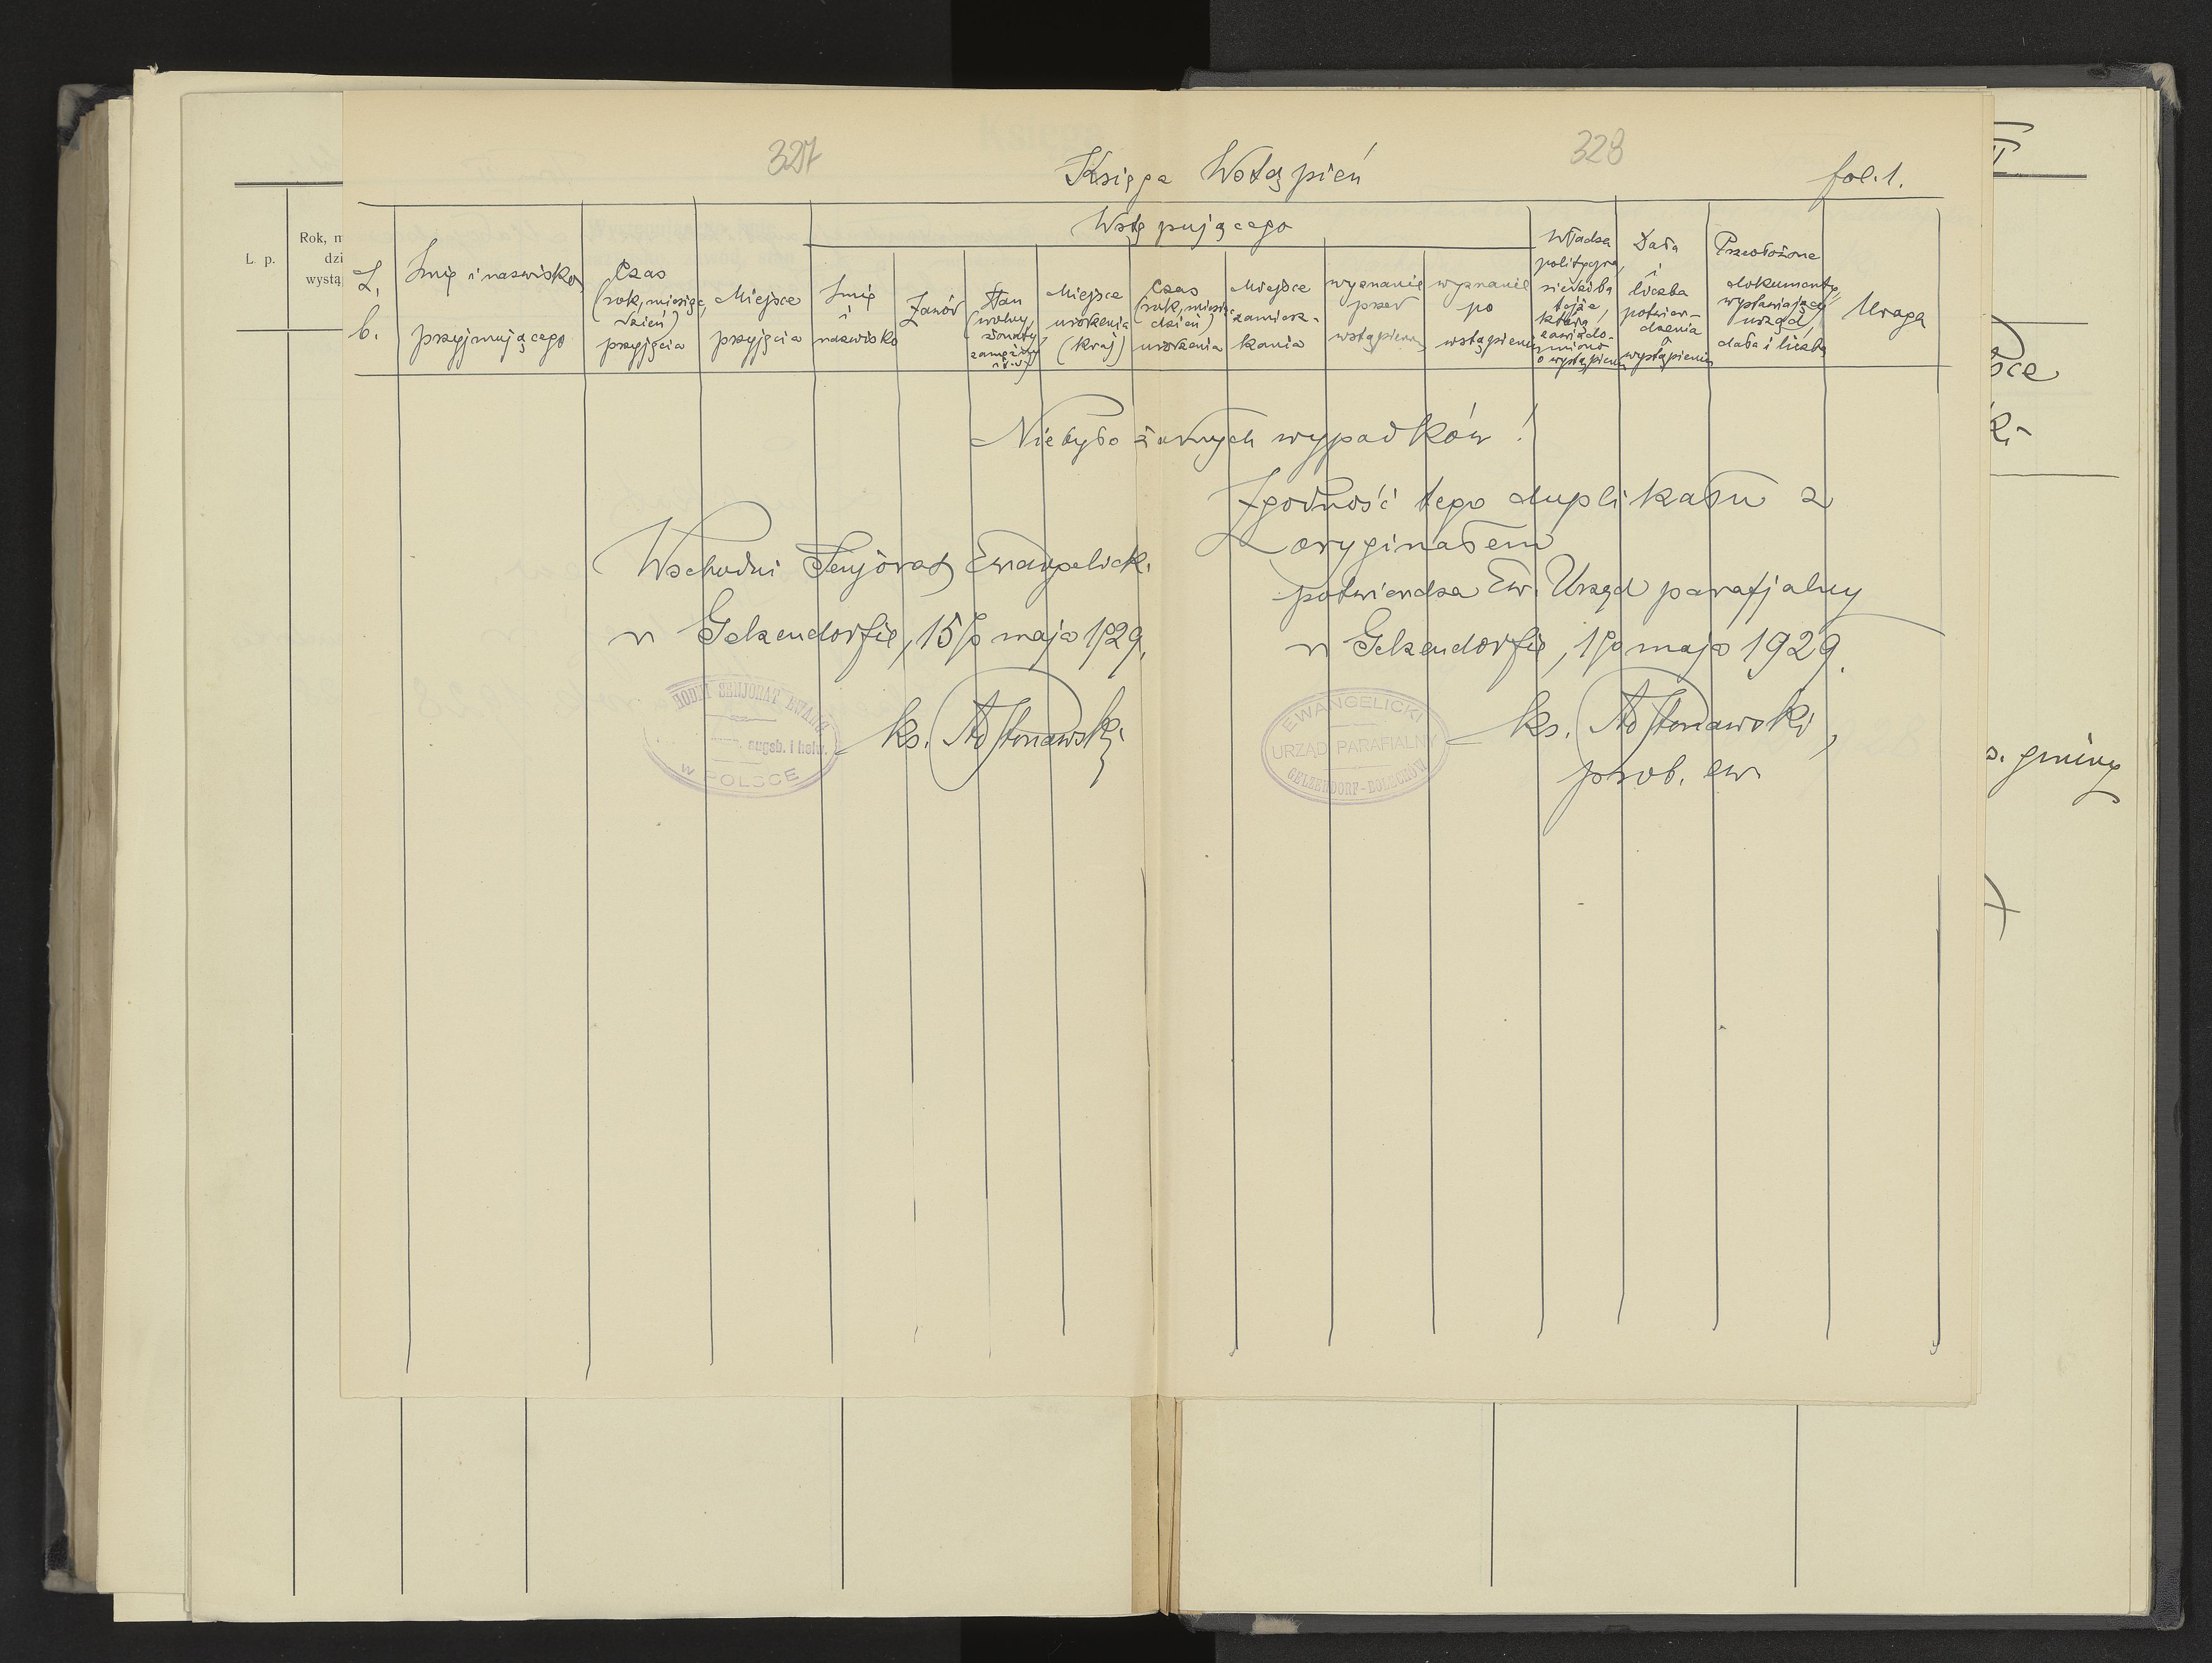 327
328
Księga Wstąpień
fol. 1.
L. b.
Imię i nazwisko przyjmującego
Czas (rok, miesiąc, dzień) przyjęcia
Miejsce przyjęcia
Wstępującego
Imię i nazwisko
Zawód
Stan (wolny, żonaty, zamężny i t. d.)
Miejsce urodzenia (kraj)
Czas (rok, miesiąc, dzień) urodzenia
Miejsce zamieszkania
wyznanie przed wstąpieniem
wyznanie po wstąpieniu
Władza polityczna, siedziba tejże, którą zawiadomiono o wystąpieniu
Data i liczba potwierdzenia o wystąpieniu
Przedłożone dokumenty, wystawiający urząd, data i liczba
Uwaga
Nie było żadnych wypadków!
Zgodność tego duplikatu z
oryginałem
potwierdza Ew. Urząd parafjalny
w Gelsendorfie, 15/5 maja 1929.
Wschodni Senjorat Ewangelick.
w Gelsendorfie, 15/5 maja 1929.
ks.
SENJORAT EWANG.
augsb. i helw.
w POLSCE
EWANGELICKI
URZĄD PARAFIALNY
GELZENDORF-BOLECHÓW
ks.
prob. ew.
L. p.
Rok, m
dzi
wystą
sce
ki-
s. gminy